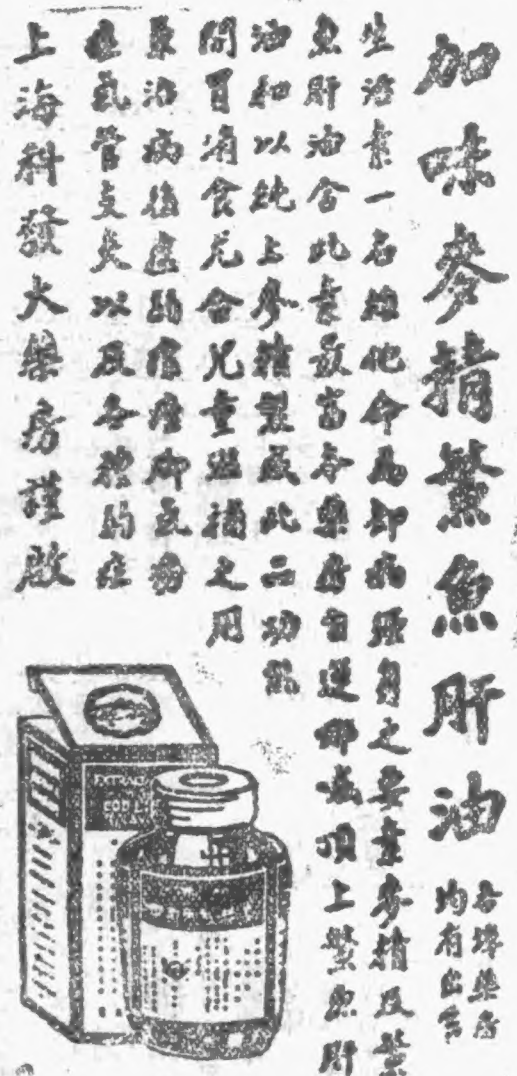 加味麥精鱉魚肝油
各埠藥房
均有出售
生活素一名維他命為却病強身之要素麥精及鱉
魚肝油含此素最富本藥房自運那威頂上鱉魚肝
油和以純上麥精製成此品功能
開胃消食尤合兒童滋補之用
兼治病後虛弱
氣管支炎以及各種弱症
上海科發大藥房謹啟
EXTRACT
COD L